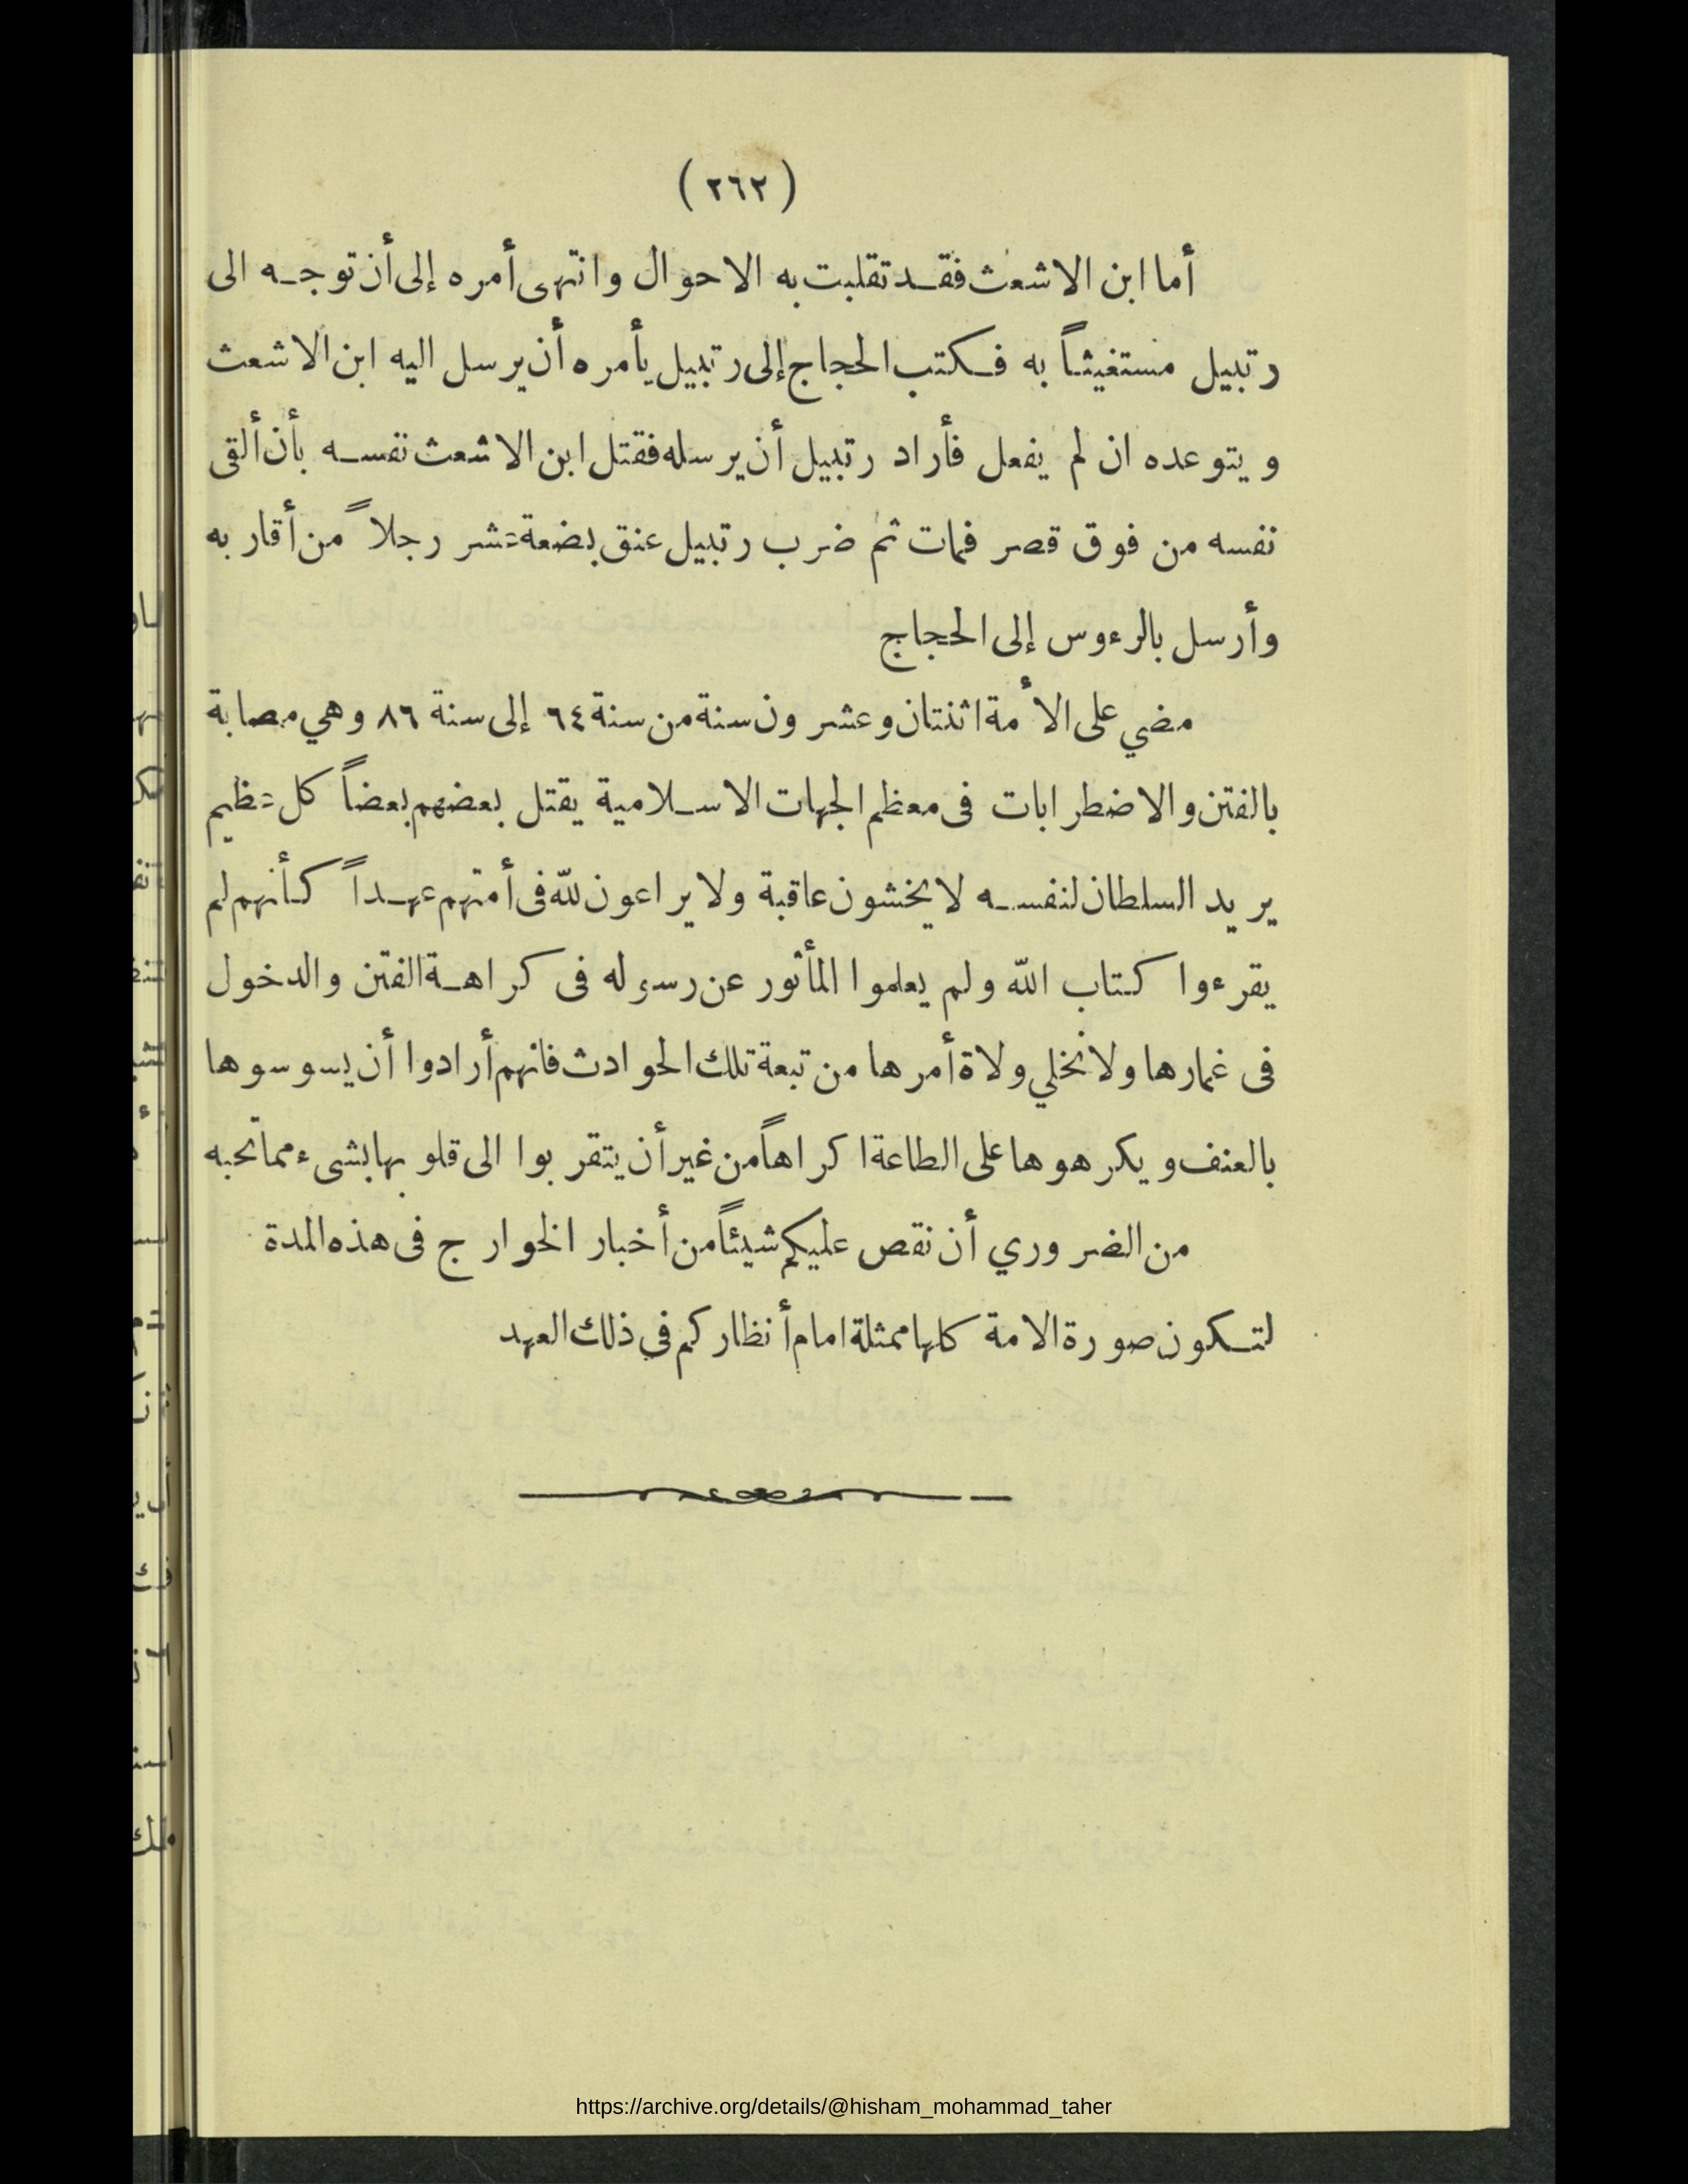 ( ٢٦٢ )
أما ابن الاشعث فقد تقلبت به الاحوال وانتهى أمره إلى أن توجه الى
رتبيل مستغيثاً به فكتب الحجاج إلى رتبيل يأمره أن يرسل اليه ابن الاشعث
ويتوعده ان لم يفعل فأراد رتبيل أن يرسله فقتل ابن الاشعث نفسه بأن ألقى
نفسه من فوق قصر فمات ثم ضرب رتبيل عنق بضعة عشر رجلاً من أقاربه
وأرسل بالرءوس إلى الحجاج
مضي على الأمة اثنتان وعشرون سنة من سنة ٦٤ إلى سنة ٨٦ وهي مصابة
بالفتن والاضطرابات فى معظم الجهات الاسلامية يقتل بعضهم بعضاً كل عظيم
يريد السلطان لنفسه لا يخشون عاقبة ولا يراعون لله فى أمتهم عهداً كأنهم لم
يقرءوا كتاب الله ولم يعلموا المأثور عن رسوله فى كراهة الفتن والدخول
فى غمارها ولا نخلي ولاة أمرها من تبعة تلك الحوادث فانهم أرادوا أن يسوسوها
بالعنف ويكرهوها على الطاعة اكراهاً من غير أن يتقربوا الى قلوبها بشىء مما تحبه
من الضروري أن نقص عليكم شيئاً من أخبار الخوارج فى هذه المدة
لتكون صورة الامة كلها ممثلة امام أنظاركم في ذلك العهد
https://archive.org/details/@hisham_mohammad_taher